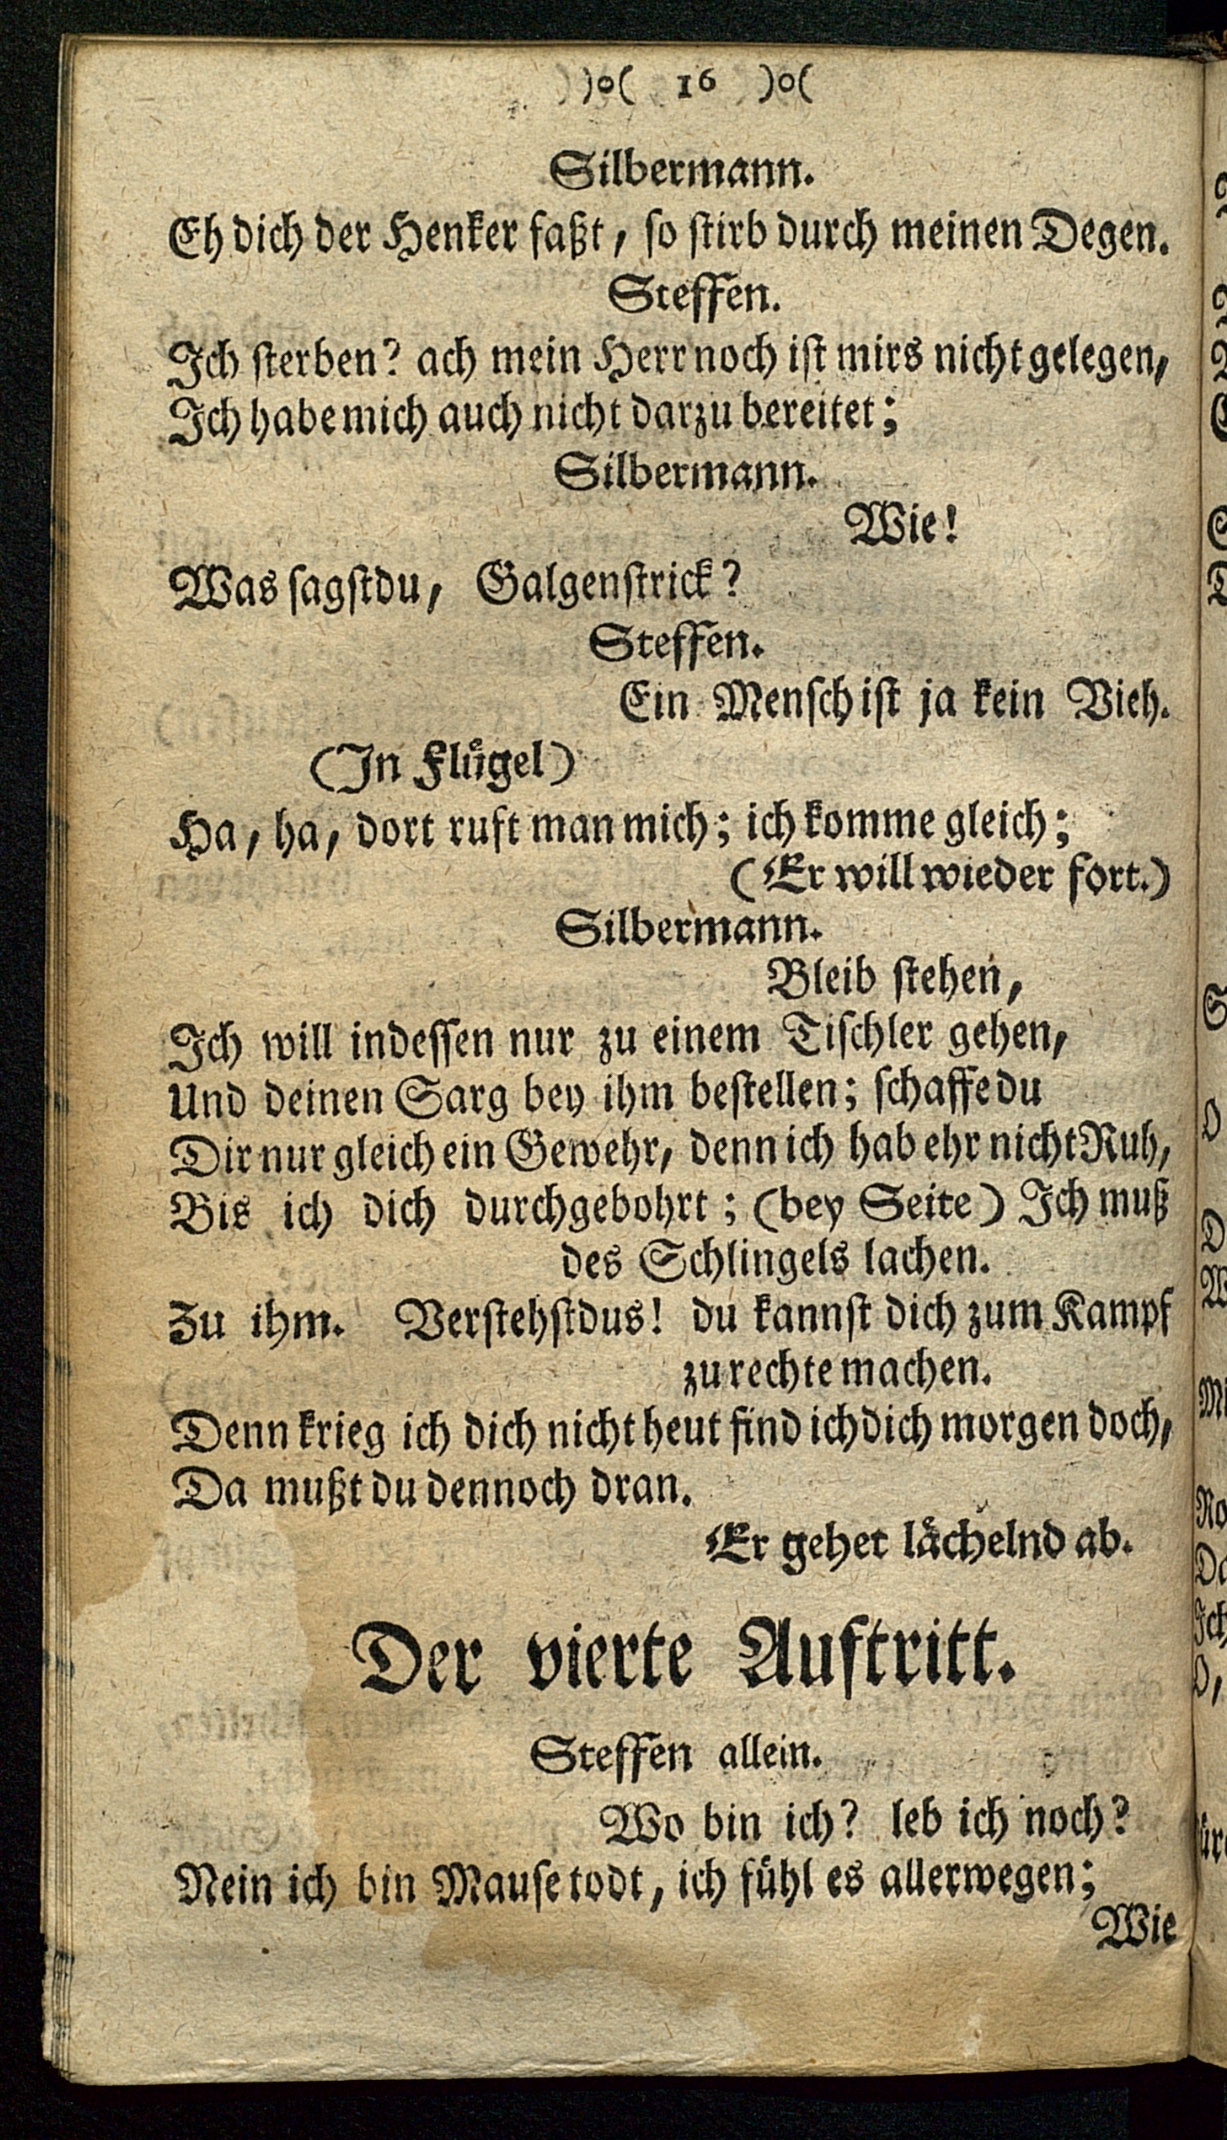 )o( 16 )o(
Silbermann.
Eh dich der Henker faßt, so stirb durch meinen Degen.
Steffen.
Ich sterben? ach mein Herr noch ist mirs nicht gelegen,
Ich habe mich auch nicht darzu bereitet;
Silbermann.
Wie!
Was sagst du, Galgenstrick?
Steffen.
Ein Mensch ist ja kein Vieh.
(In Flügel)
Ha, ha, dort ruft man mich; ich komme gleich;
(Er will wieder fort.)
Silbermann.
Bleib stehen,
Ich will indessen nur zu einem Tischler gehen,
Und deinen Sarg bey ihm bestellen; schaffe du
Dir nur gleich ein Gewehr, denn ich hab ehr nicht Ruh,
Bis ich dich durchgebohrt; (bey Seite) Ich muß
des Schlingels lachen.
Zu ihm. Verstehst dus! du kannst dich zum Kampf
zu rechte machen.
Denn krieg ich dich nicht heut find ich dich morgen doch,
Da mußt du dennoch dran.
Er gehet lächelnd ab.
Der vierte Auftritt.
Steffen allein.
Wo bin ich? leb ich noch?
Nein ich bin Mause todt, ich fühl es allerwegen;
Wie